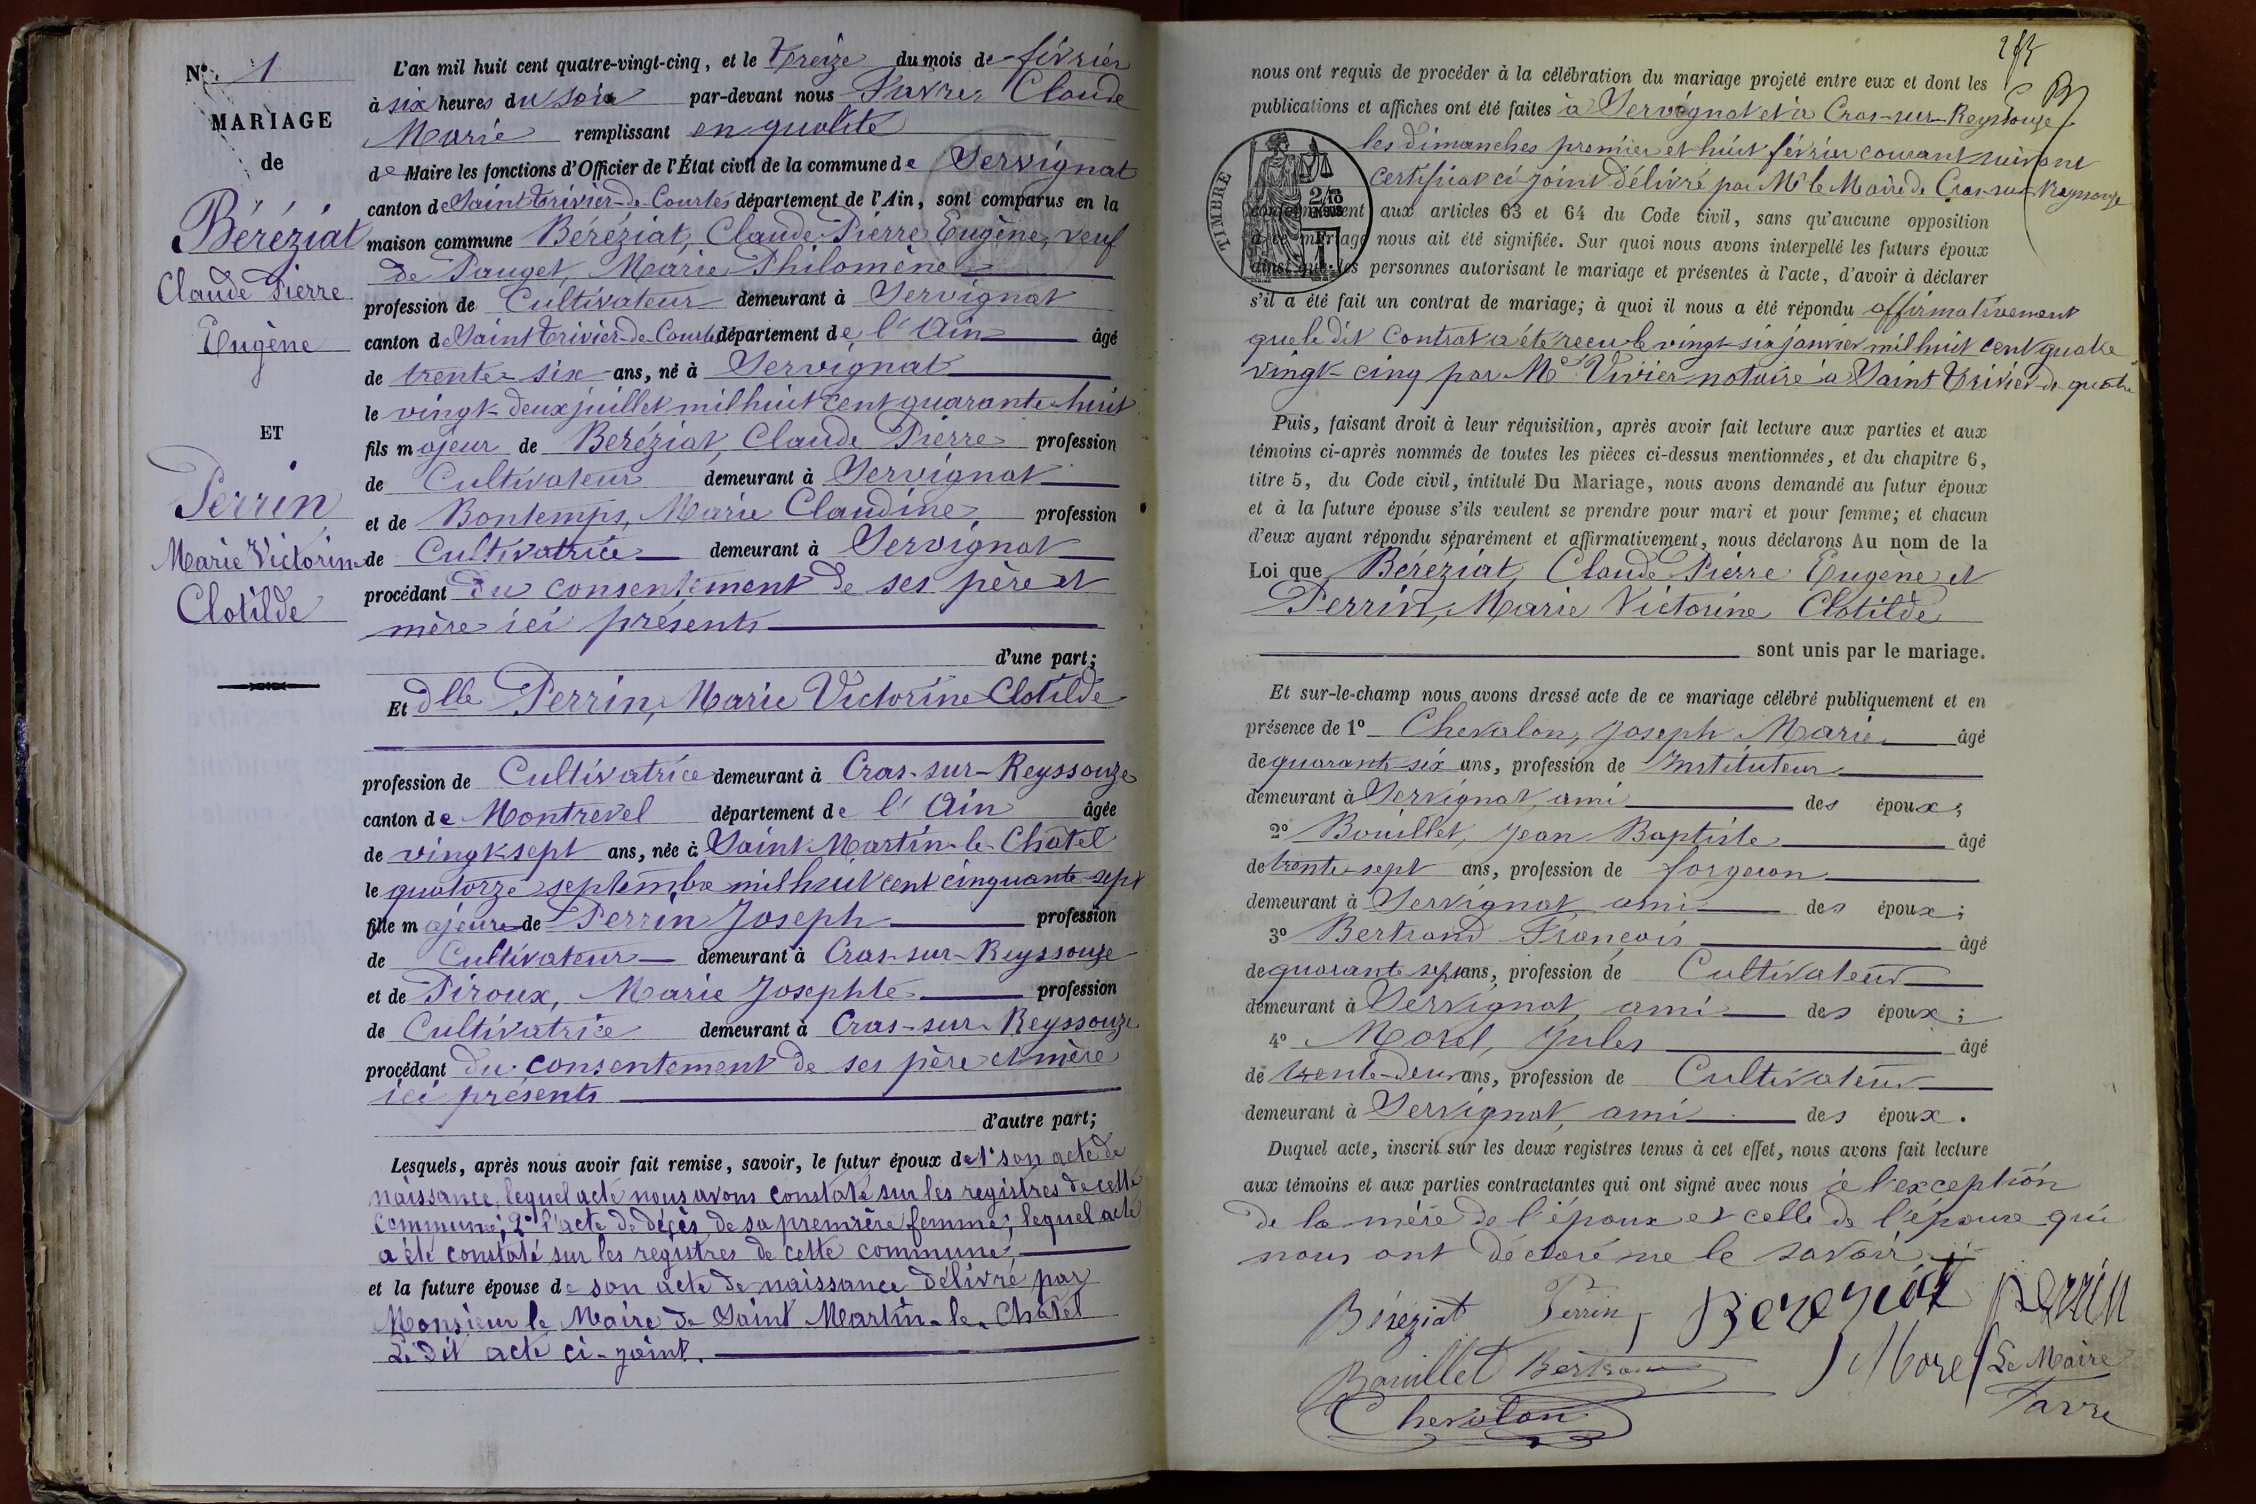 N°. 1
MARIAGE
de
Béréziat
Claude Pierre
Eugène
ET
Perrin
Marie Victorine
Clotilde
L'an mil huit cent quatre-vingt-cinq, et le treize du mois de février
à six heures du soir par-devant nous Favre, Claude
Marie remplissant en qualité
de Maire les fonctions d'Officier de l'État civil de la commune de Servignat
canton de Saint Trivier-de-Courtes département de l'Ain, sont comparus en la
maison commune Béréziat, Claude Pierre Eugène, veuf
de Pauget, Marie Philomène
profession de Cultivateur demeurant à Servignat
canton de Saint Trivier-de-Courtes département de l'Ain âgé
de trente-six ans, né à Servignat
le vingt-deux juillet mil huit cent quarante-huit
fils majeur de Béréziat, Claude Pierre profession
de Cultivateur demeurant à Servignat
et de Bontemps, Marie Claudine profession
de Cultivatrice demeurant à Servignat
procédant du consentement de ses père et
mère ici présents
d'une part;
Et dlle Perrin, Marie Victorine Clotilde
profession de Cultivatrice demeurant à Cras-sur-Reyssouze
canton de Montrevel département de l'Ain âgée
de vingt-sept ans, née à Saint Martin-le-Chatel
le quatorze septembre mil huit cent cinquante-sept
fille majeure de Perrin Joseph profession
de Cultivateur demeurant à Cras-sur-Reyssouze
et de Piroux, Marie Josephte profession
de Cultivatrice demeurant à Cras-sur-Reyssouze
procédant du consentement de ses père et mère
ici présents
d'autre part;
Lesquels, après nous avoir fait remise, savoir, le futur époux de 1° son acte de
naissance, lequel acte nous avons constaté sur les registres de cette
commune; 2° l'acte de décès de sa première femme, lequel acte
a été constaté sur les registres de cette commune,
et la future épouse de son acte de naissance délivré par
Monsieur le Maire de Saint Martin-le-Chatel
Le dit acte ci-joint.
nous ont requis de procéder à la célébration du mariage projeté entre eux et dont les
publications et affiches ont été faites à Servignat et à Cras-sur-Reyssouze
les dimanches premier et huit février courant suivant
certificat ci-joint délivré par Mr le Maire de Cras-sur-Reyssouze
TIMBRE
conformément aux articles 63 et 64 du Code civil, sans qu'aucune opposition
à ce mariage nous ait été signifiée. Sur quoi nous avons interpellé les futurs époux
ainsi que les personnes autorisant le mariage et présentes à l'acte, d'avoir à déclarer
s'il a été fait un contrat de mariage; à quoi il nous a été répondu affirmativement
que le dit Contrat a été reçu le vingt-six janvier mil huit cent quatre
vingt-cinq par Me Vivier notaire à Saint Trivier-de-
Puis, faisant droit à leur réquisition, après avoir fait lecture aux parties et aux
témoins ci-après nommés de toutes les pièces ci-dessus mentionnées, et du chapitre 6,
titre 5, du Code civil, intitulé Du Mariage, nous avons demandé au futur époux
et à la future épouse s'ils veulent se prendre pour mari et pour femme; et chacun
d'eux ayant répondu séparément et affirmativement, nous déclarons Au nom de la
Loi que Béréziat, Claude Pierre Eugène et
Perrin, Marie Victorine Clotilde
sont unis par le mariage.
Et sur-le-champ nous avons dressé acte de ce mariage célébré publiquement et en
présence de 1° Chevalon, Joseph Marie âgé
de quarante-six ans, profession de Instituteur
demeurant à Servignat, ami des époux;
2° Bouillet, Jean Baptiste âgé
de trente-sept ans, profession de forgeron
demeurant à Servignat ami des époux;
3° Bertrand François âgé
de quarante sept ans, profession de Cultivateur
demeurant à Servignat, ami des époux;
4° Morel, Jules âgé
de trente-deux ans, profession de Cultivateur
demeurant à Servignat, ami des époux.
Duquel acte, inscrit sur les deux registres tenus à cet effet, nous avons fait lecture
aux témoins et aux parties contractantes qui ont signé avec nous à l'exception
de la mère de l'époux et celle de l'épouse qui
nous ont déclaré ne le savoir
Béréziat Perrin Bereziat Perrin
Bouillet Bertrand Morel Le Maire
Chevalon Favre